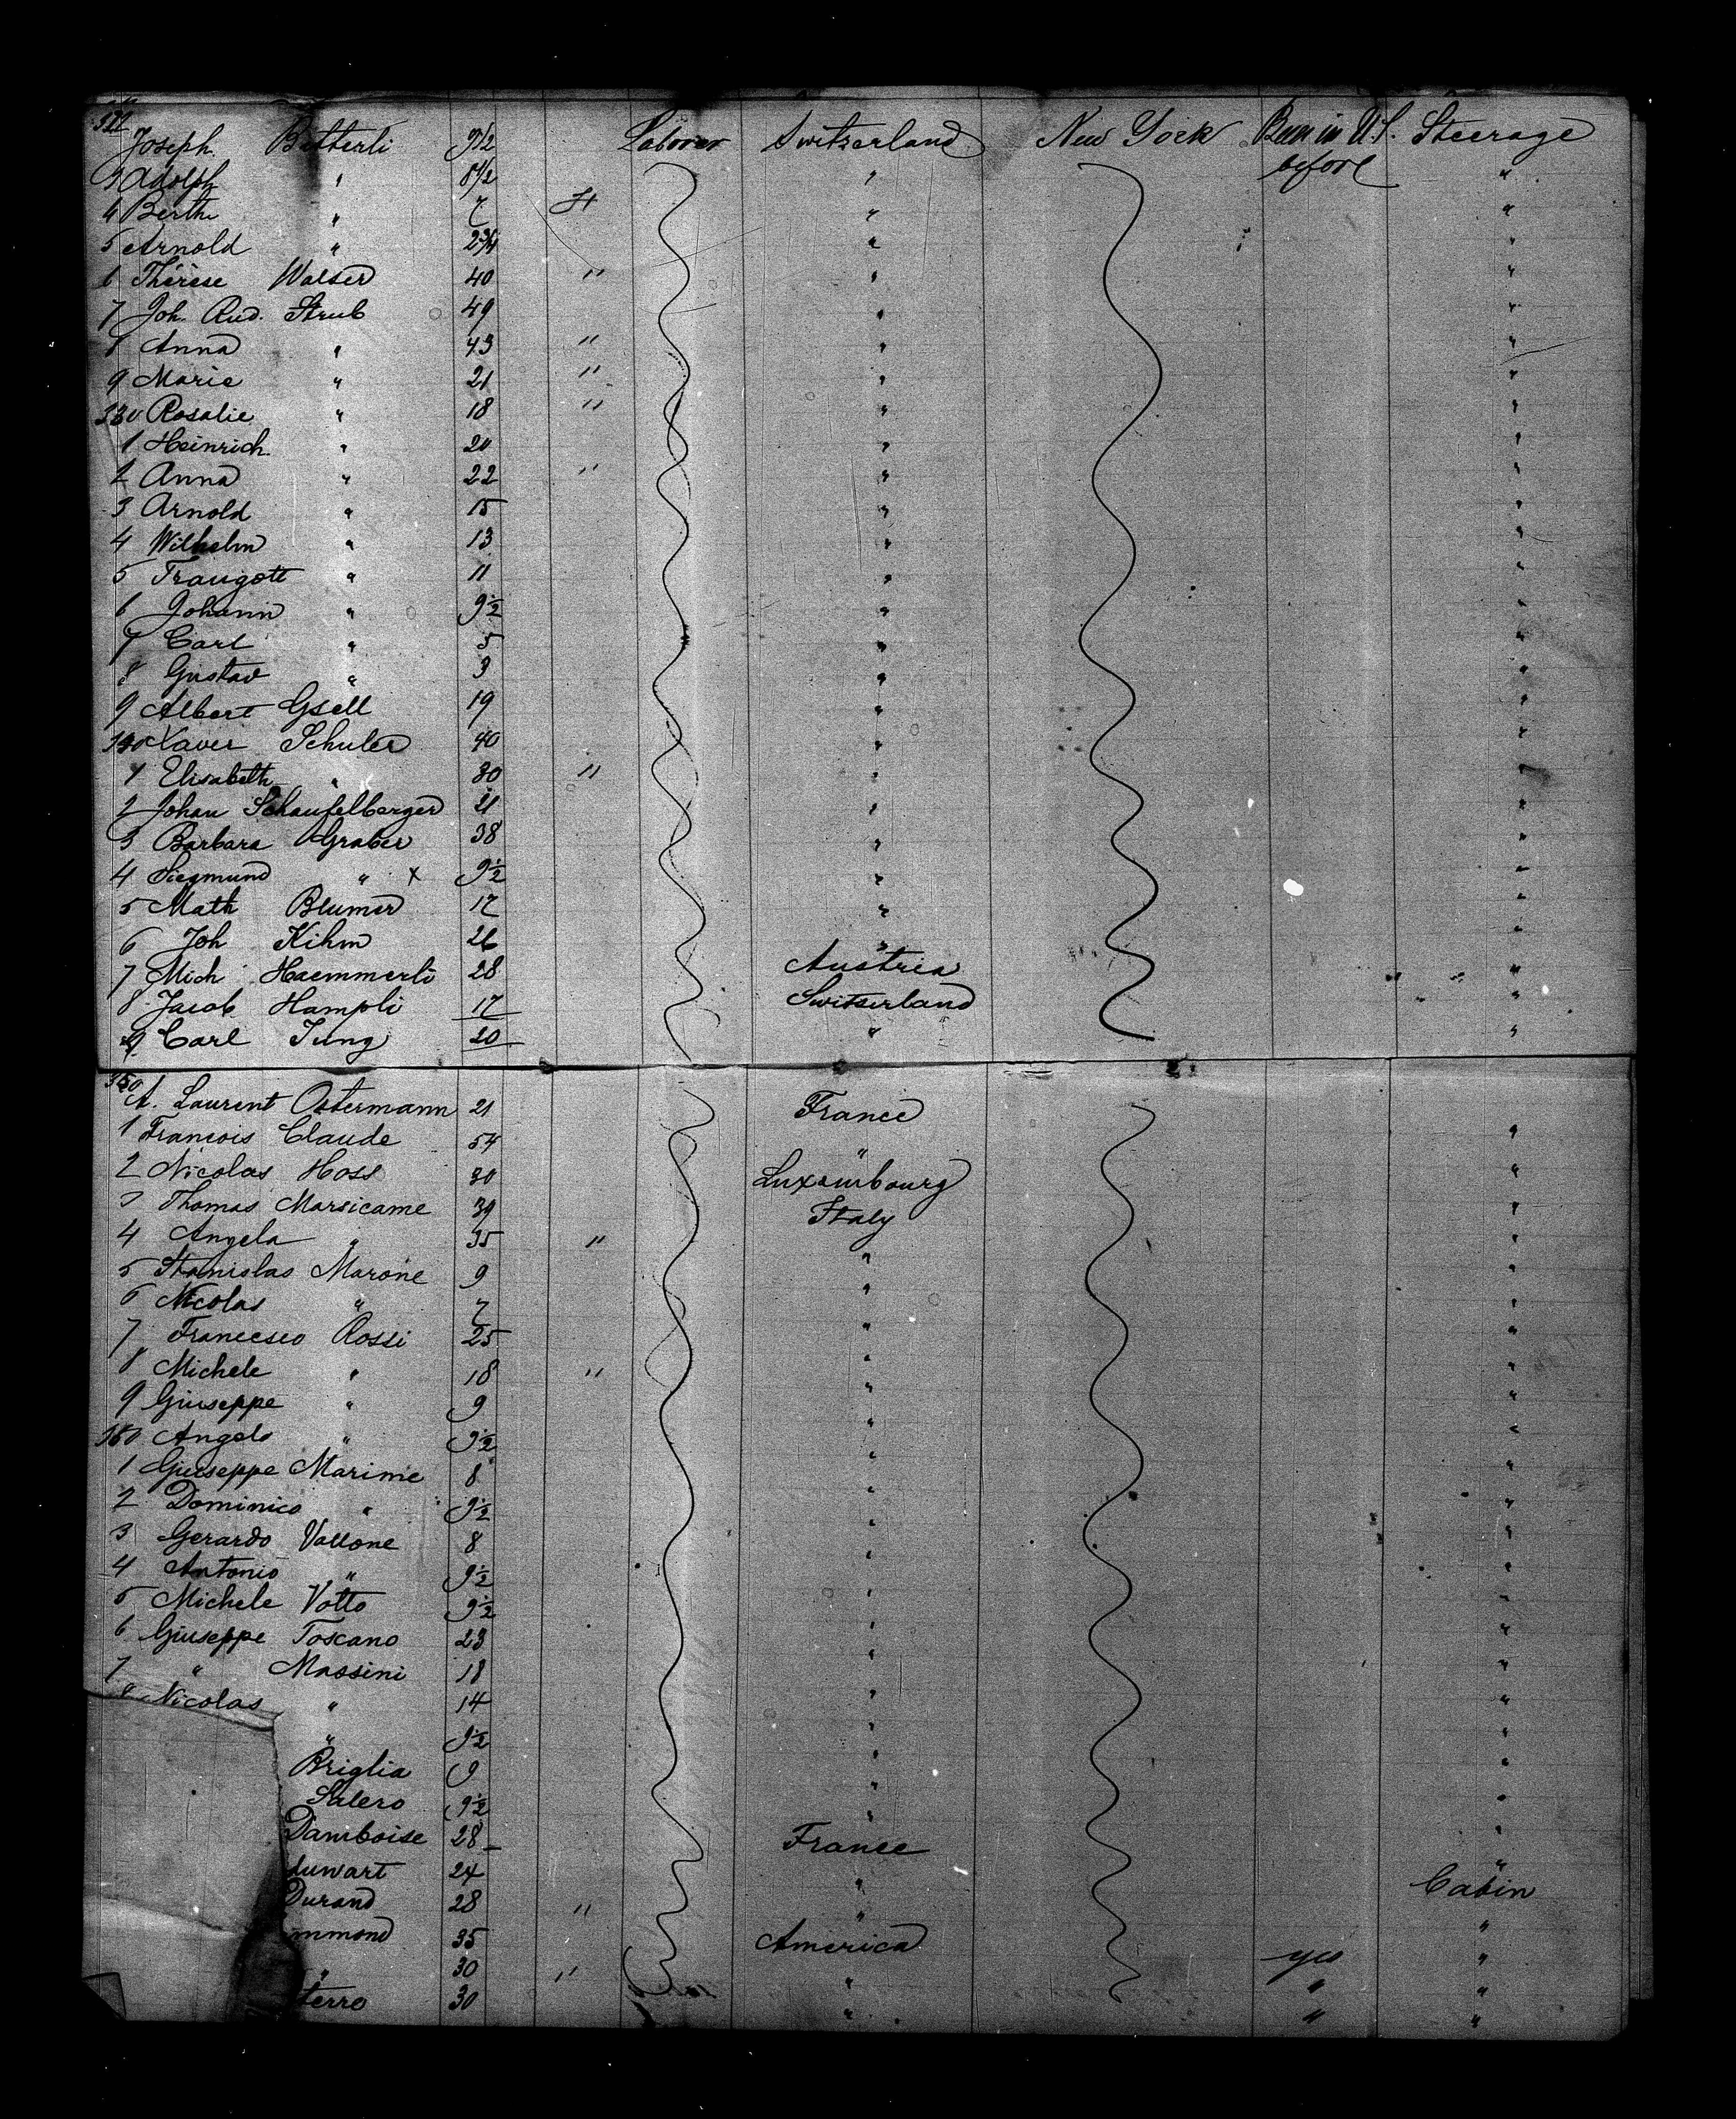 322 Joseph Betterli 9 1/2 Laborer Switzerland New York Been in U.S. before Steerage
3 Adolph " 8 1/2 " "
4 Berth " 7 H " "
5 Arnold " 2 3/4 " "
6 Thérèse Walser 40 " " "
7 Joh. Rud. Strub 49 " "
8 Anna " 43 " " "
9 Marie " 21 " " "
330 Rosalie " 18 " " "
1 Heinrich " 20 " "
2 Anna " 22 " " "
3 Arnold " 15 " "
4 Wilhelm " 13 " "
5 Traugott " 11 " "
6 Johann " 9 1/2 " "
7 Carl " 5 " "
8 Gustav " 3 " "
9 Albert Gsell 19 " "
340 Xaver Schuler 40 " "
1 Elisabeth " 30 " " "
2 Johan Schaufelberger 21 " "
3 Barbara Graber 38 " "
4 Siegmund " x 9 1/2 " "
5 Math Blumer 17 " "
6 Joh Kihm 26 " "
7 Mich Haemmerli 28 Austria "
8 Jacob Hampli 17 Switzerland "
9 Carl Jung 20 " "
350 A. Laurent Ostermann 21 France
1 Francois Claude 54 " "
2 Nicolas Hoss 30 Luxembourg "
3 Thomas Marsicame 39 Italy "
4 Angela " 35 " " "
5 Stanislas Marone 9 " "
6 Nicolas " 7 " "
7 Francesco Rossi 25 " "
8 Michele " 18 " " "
9 Giuseppe " 9 " "
360 Angelo " 9 1/2 " "
1 Giuseppe Marime 8 " "
2 Dominico " 9 1/2 " "
3 Gerardo Vallone 8 " "
4 Antonio " 9 1/2 " "
5 Michele Votto 9 1/2 " "
6 Giuseppe Toscano 23 " "
7 " Massini 18 " "
8 Nicolas " 14 " "
" 9 1/2 " "
Briglia 9 " "
Salero 9 1/2 " "
Damboise 28 France "
luwart 24 " Cabin
Durand 28 " " "
mmond 35 America yes "
" 30 " " " "
terro 30 " " "